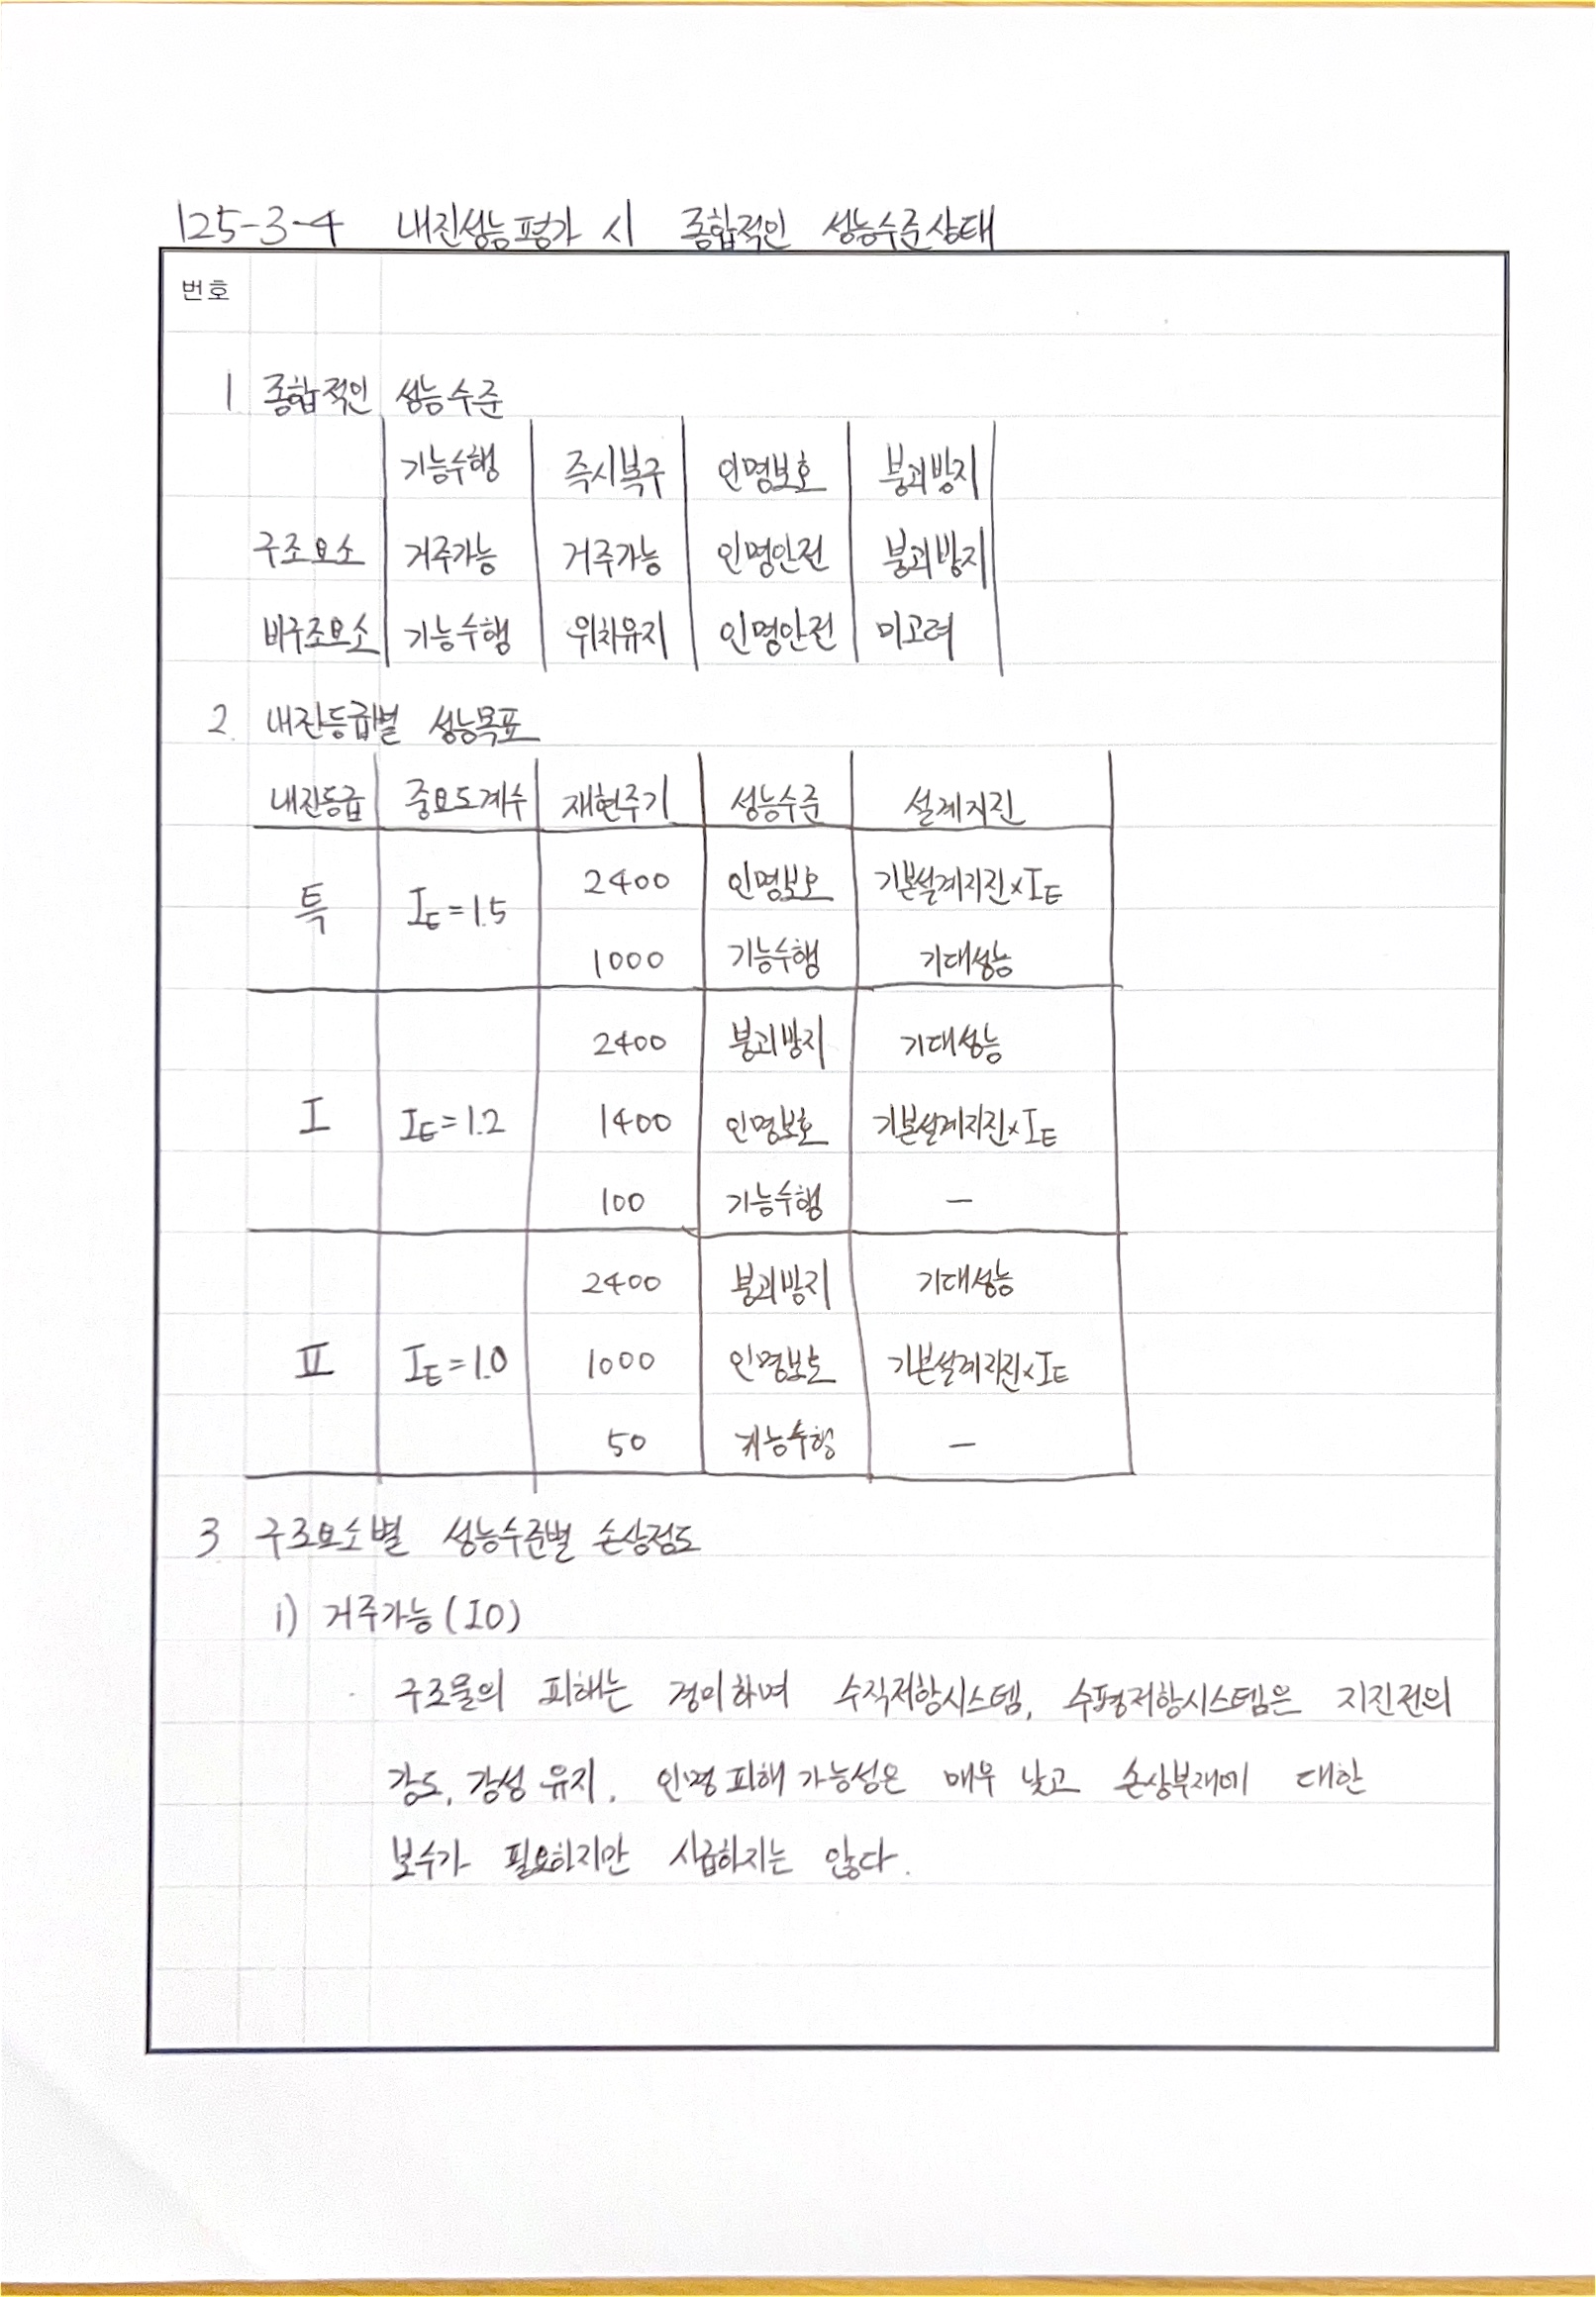 125-3-4 내진성능평가 시 종합적인 성능수준상태
번호
1 종합적인 성능수준
기능수행 즉시복구 인명보호 붕괴방지
구조요소 거주가능 거주가능 인명안전 붕괴방지
비구조요소 기능수행 위치유지 인명안전 미고려
2. 내진등급별 성능목표
내진등급 중요도계수 재현주기 성능수준 설계지진
특 IE=1.5 2400 인명보호 기본설계지진×IE
1000 기능수행 기대성능
2400 붕괴방지 기대성능
I IE=1.2 1400 인명보호 기본설계지진×IE
100 기능수행 -
2400 붕괴방지 기대성능
II IE=1.0 1000 인명보호 기본설계지진×IE
50 기능수행 -
3 구조요소별 성능수준별 손상정도
i) 거주가능(IO)
구조물의 피해는 경미하며 수직저항시스템, 수평저항시스템은 지진전의
강도, 강성 유지. 인명피해 가능성은 매우 낮고 손상부재에 대한
보수가 필요하지만 시급하지는 않다.